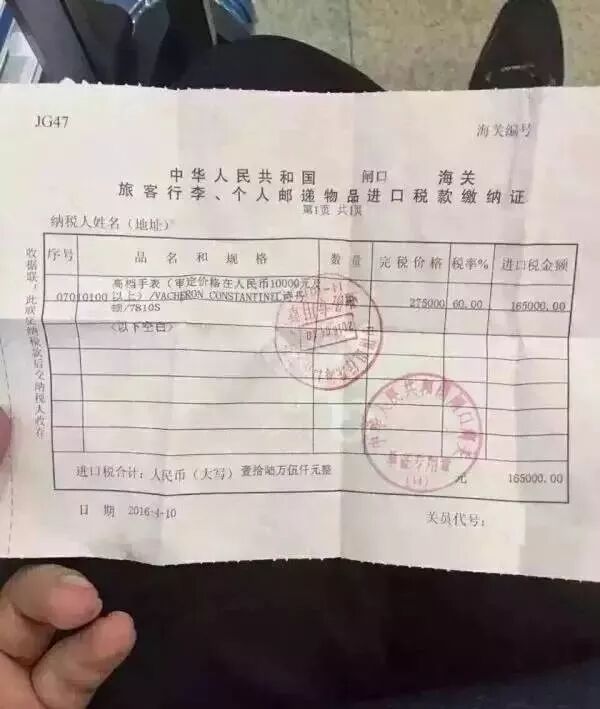 JG47
海关编号
中华人民共和国 闸口 海关
旅客行李、个人邮递物品进口税款缴纳证
第1页 共1页
纳税人姓名(地址)
序号 品名和规格 数量 完税价格 税率% 进口税金额
高档手表(审定价格在人民币10000元及
07010100 以上)/VACHERON CONSTANTIN 275000 60.00 165000.00
顿/7810S
(以下空白)
进口税合计:人民币(大写) 壹拾陆万伍仟元整 元 165000.00
日 期 2016-4-10 关员代号:
收据联:此联是纳税款后交纳税人收存
中华人民共和国闸口海关
单证专用章